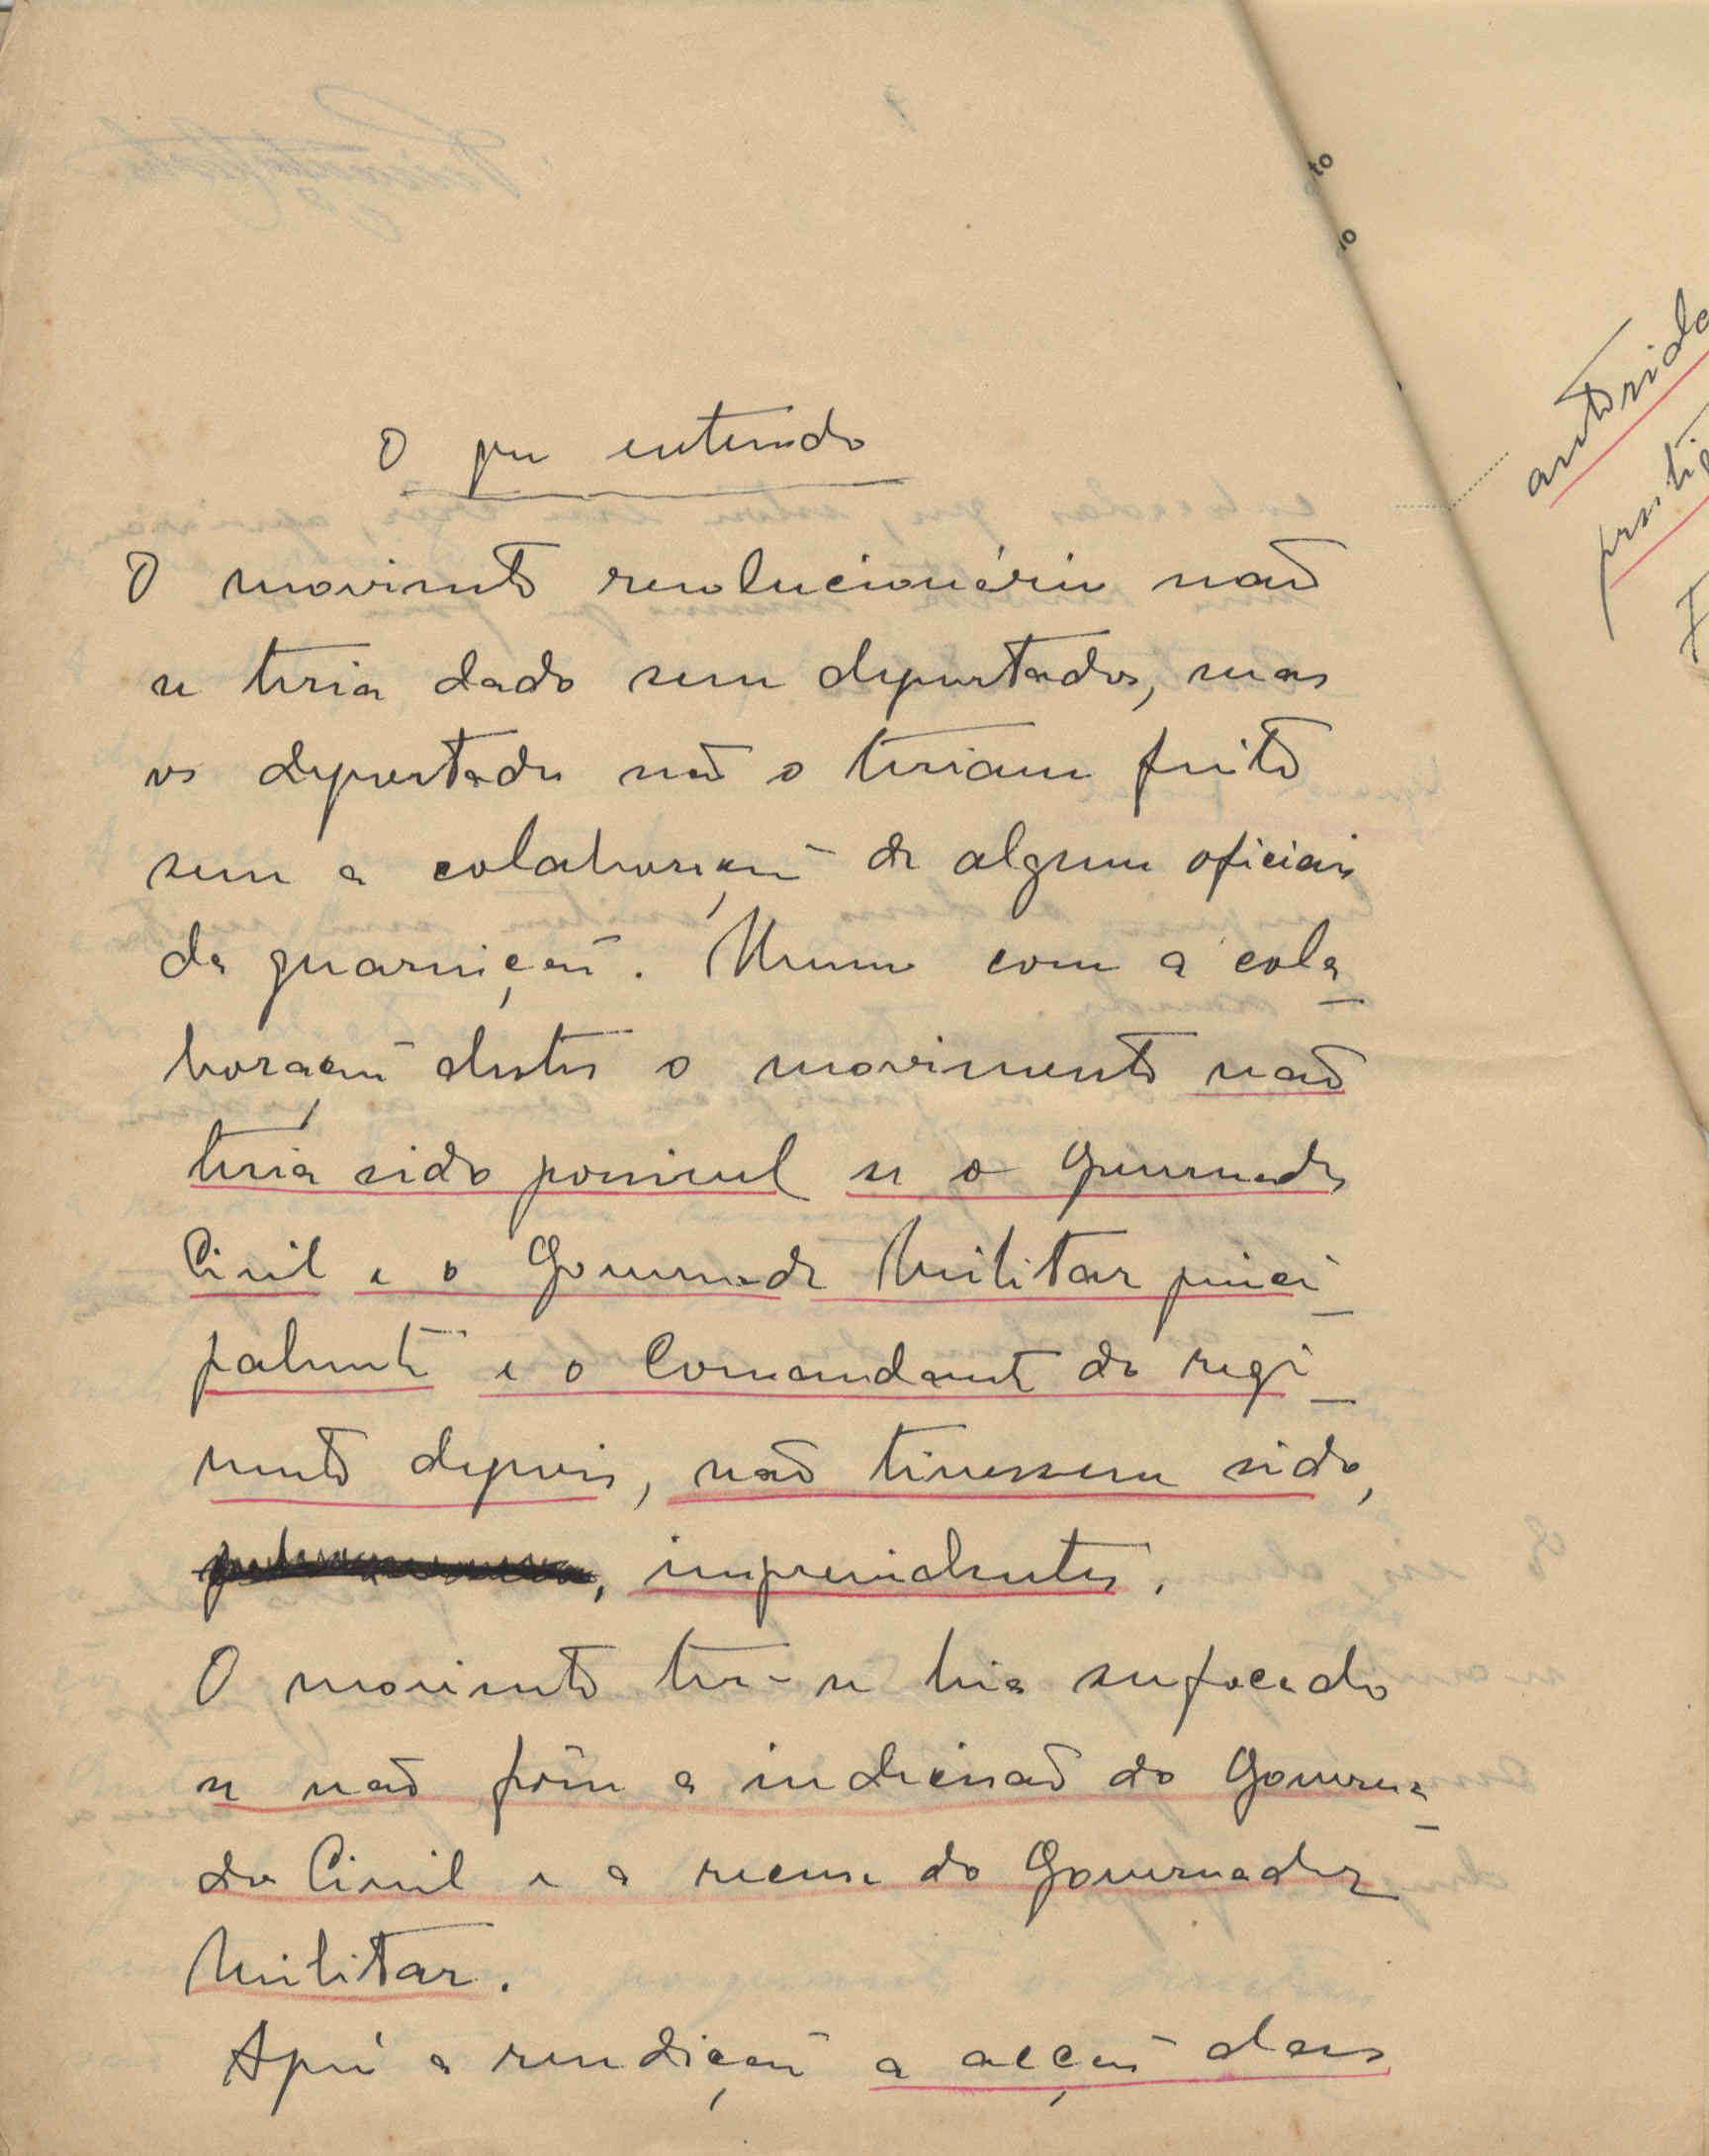 O que entendo
O movimento revolucionário não
se teria dado sem deportados, mas
os deportados não o teriam feito
sem a colaboração de alguns oficiais
da guarnição. Mesmo com a cola-
boração destes o movimento não
teria sido possivel se o Governador
Civil e o Governador Militar princi-
palmente e o Comandante do regi-
mento depois, não tivessem sido,
, imprevidentes.
O movimento ter-se-hia sufocado
se não fôra a indecisão do Governa-
dor Civil e a recusa do Governador
Militar.
Após a rendição a acção das
to
lo
autorida
prestig